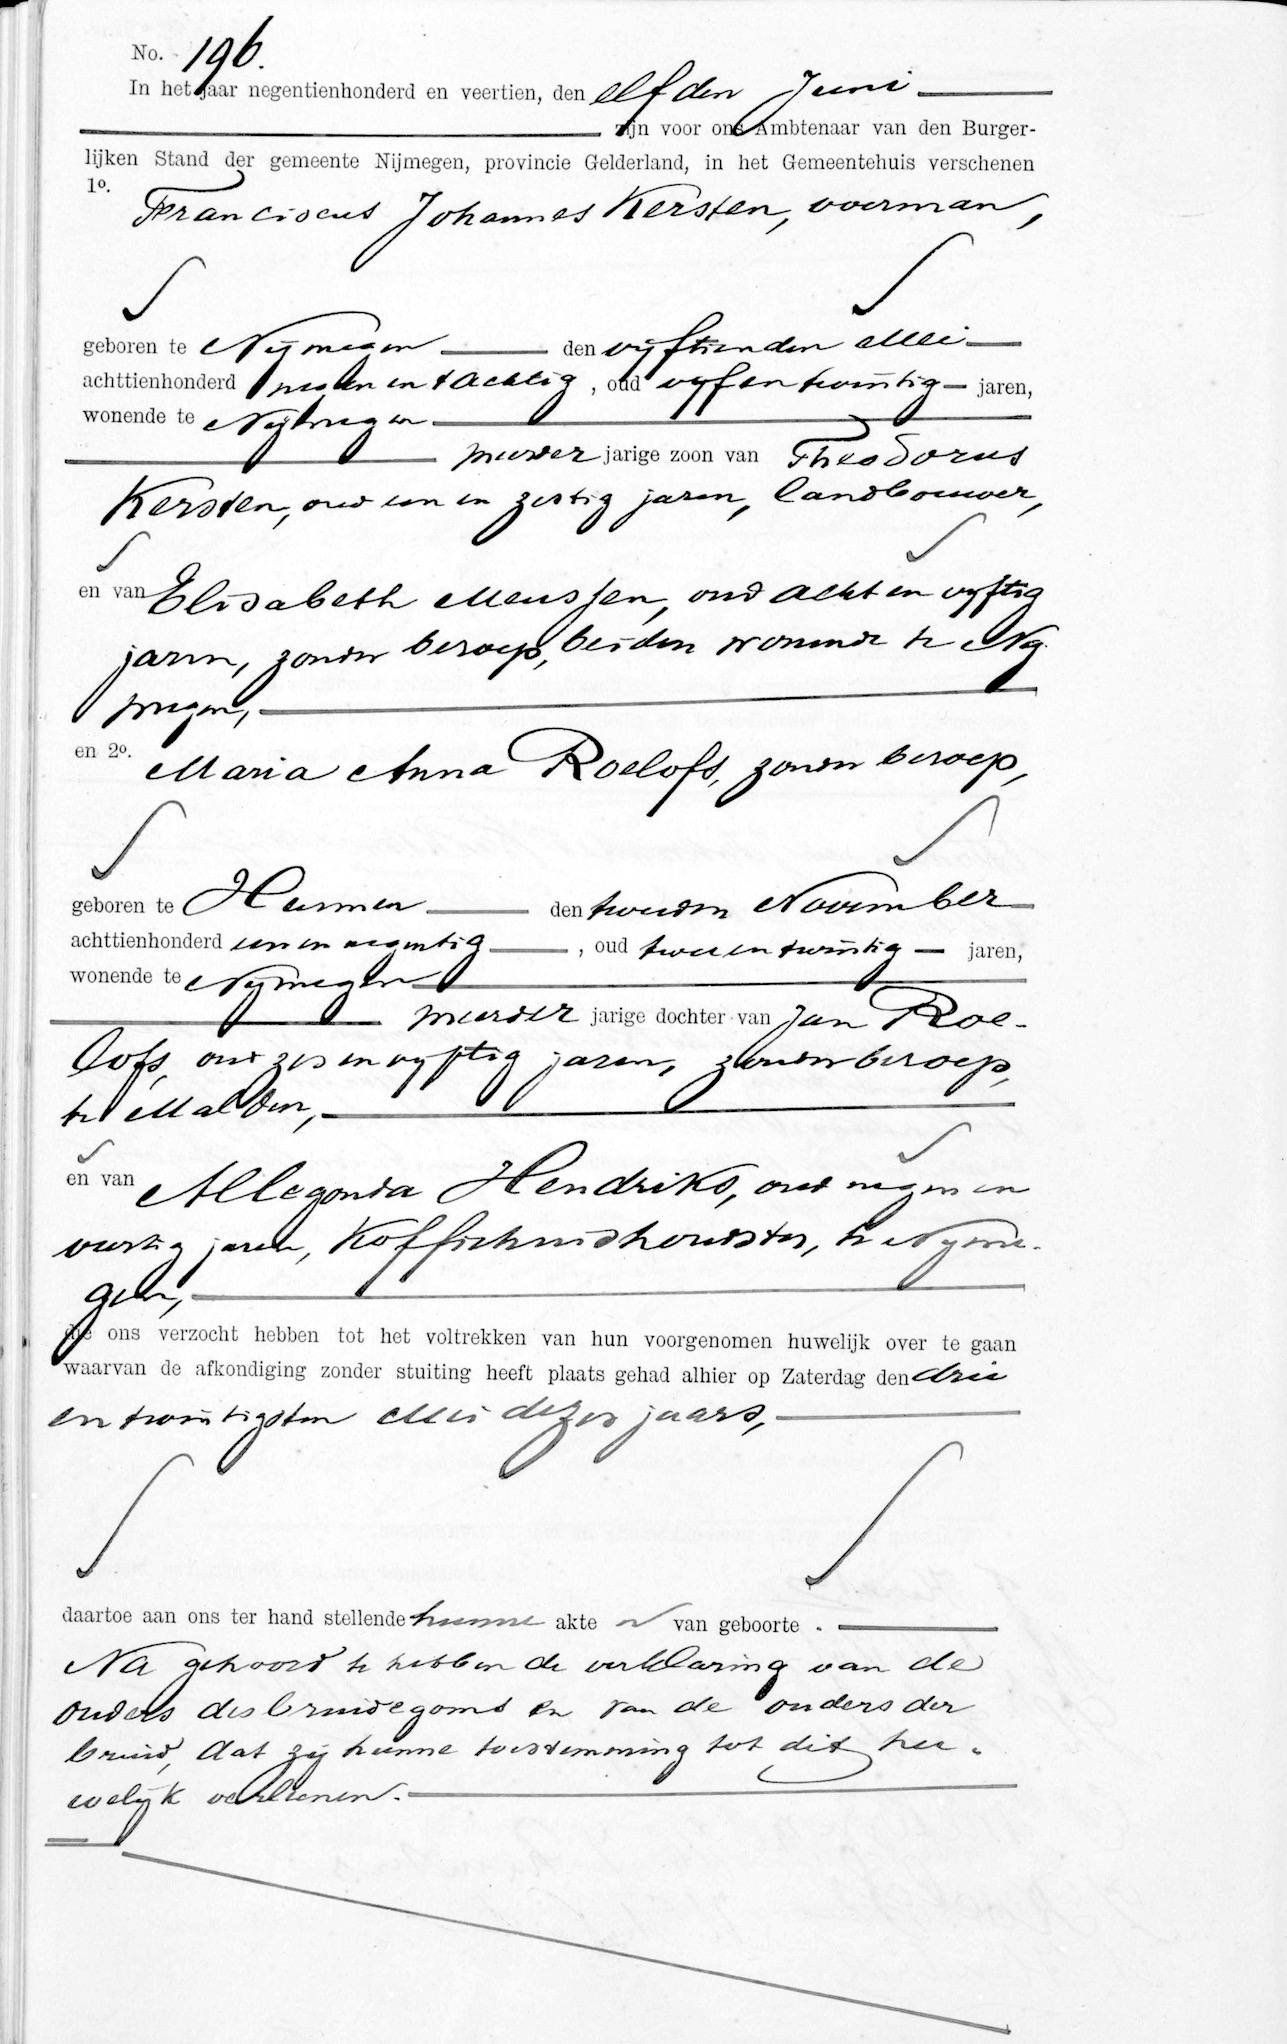 No. 196.
In het jaar negentienhonderd en veertien, den elfden Juni
zijn voor ons Ambtenaar van den Burger-
lijken Stand der gemeente Nijmegen, provincie Gelderland, in het Gemeentehuis verschenen
1o.
Franciscus Johannes Kersten, voerman,
geboren te Nijmegen den vijftienden Mei
achttienhonderd negen en tachtig, oud vijf en twintig jaren,
wonende te Nijmegen
meerder jarige zoon van Theodorus
Kersten, oud een en zestig jaren, landbouwer,
en van Elisabeth Meussen, oud acht en vijftig
jaren, zonder beroep, beiden wonende te Nij-
megen,
en 2o. Maria Anna Roelofs, zonder beroep,
geboren te Heumen den tweeden November
achttienhonderd een en negentig, oud twee en twintig jaren,
wonende te Nijmegen
meerder jarige dochter van Jan Roe-
lofs, oud zes en vijftig jaren, zonder beroep,
te Malden,
en van Allegonda Hendriks, oud negen en
veertig jaren, Koffiehuishoudster, te Nijme-
gen,
die ons verzocht hebben tot het voltrekken van hun voorgenomen huwelijk over te gaan
waarvan de afkondiging zonder stuiting heeft plaats gehad alhier op Zaterdag den drie
en twintigsten Mei dezes jaars,
daartoe aan ons ter hand stellende hunne akte n van geboorte.
Na gehoord te hebben de verklaring van de
ouders des bruidegoms en van de ouders der
bruid, dat zij hunne toestemming tot dit hu-
welijk verleenen.